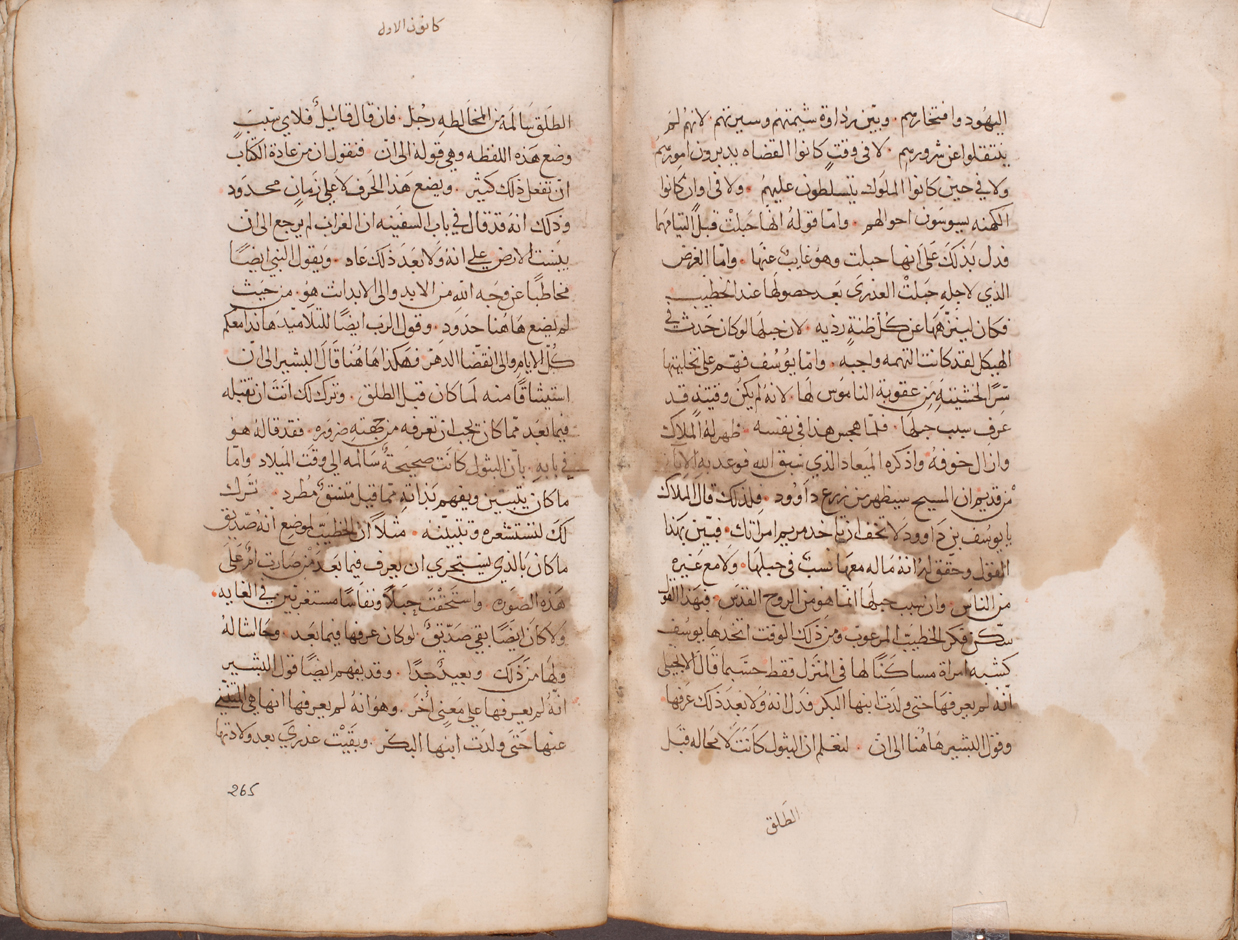 اليهود وافتخارهم . وبيّن رداوة شيمتهم وسيرتهم . لانهم لم
ينتقلوا عن شرورهم . لا فى وقتٍ كانوا القضاه يدبرون امورهم
ولا في حين كانوا الملوك يتسلطون عليهم . ولا فى اوان كانوا
الكهنه يسوسون احوالهم . واما قوله انها حبلت قبل التيامهما
فدل بذلك على انها حبلت وهو غايب عنها . واما الغرض
الذي لاجله حبلت العذرى بعد حصولها عند الخطيب
فكان لينزهها عن كل ظنةٍ رديه . لان حبلها لو كان حدث في
الهيكل لقد كانت التهمه واجبه . واما يوسف فهمّ على تخليتها
سرًا لخشيته من عقوبة الناموس لها . لانه لم يكن وقتيذٍ قد
عرف سبب حبلها . فلما هجس هذا فى نفسه . ظهر له الملاك
وازال خوفه واذكره الميعاد الذي سبق الله فوعد به الابآ
من قديم ان المسيح سيظهر من زرع داوود . فلذلك قال الملاك
يا يوسف بن داوود لا تخف ان تاخد مريم امراتك . فبيّن بهذا
القول وحقق له انه ما له معها نسب فى حبلها . ولا مع غيره
من الناس . وان سبب حبلها انما هو من الروح القدس . فبهذا القول
سكن فكر الخطيب المرعوب ومن ذلك الوقت اتخدها يوسف
كشبه امراة مساكنًا لها فى المنزل فقط حسبما قال الانجيلى
انه لم يعرفها حتى ولدت ابنها البكر فدل انه ولا بعد ذلك عرفها
وقول البشير هاهنا الى ان . لتعلم ان البتول كانت لا محاله قبل
الطلق
كانون الاول
الطلق سالمه من المخالطه رجل . فان قال قايل فلاي سبب
وضع هذه اللفظه وهي قوله الى ان . فنقول ان من عادة الكتاب
ان تفعل ذلك كثير . ويضع هذا الحرف لا على زمان محدود
وذلك انه قد قال في باب السفينه ان الغراب لم يرجع الى ان
يبست الارض على انه ولا بعد ذلك عاد . ويقول النبي ايضًا
مخاطبًا عن وجه الله من الابد والى الابد انت هو . من حيث
لم يضع هاهنا حدود . وقول الرب ايضًا للتلاميد هاندا معكم
كل الايام والى انقضا الدهر فهكذا هاهنا قال البشير الى ان
استيثاقًا منه لما كان قبل الطلق . وترك لك انت ان تقبله
فيما بعد مما كان يجب ان تعرفه من جهته ضروره . فقد قاله هو
في بابه . بان البتول كانت صحيحة سالمه الى وقت الميلاد . واما
ما كان يتبين ويفهم بذاته مما قيل متسق مطرد . ترك
لك لتستشعره وتتبينه . مثلاً ان الخطيب لموضع انه صديق
ما كان بالذي يستجرى ان يعرف فيما بعد من صارت امّ على
هذه الصوره . واستحقت حبلاً ونفاسًا مستغربين في الغايه .
ولا كان ايضًا بقي صدّيق لو كان عرفها فيما بعد . وحاشا له
ولها من ذلك . وبعيد جدًا . وقد يفهم ايضًا قول البشير
انه لم يعرفها على معنى اخر . وهو انه لم يعرفها انها هي المتنبى
عنها حتى ولدت ابنها البكر . وبقيت عدرى بعد ولادتها
265